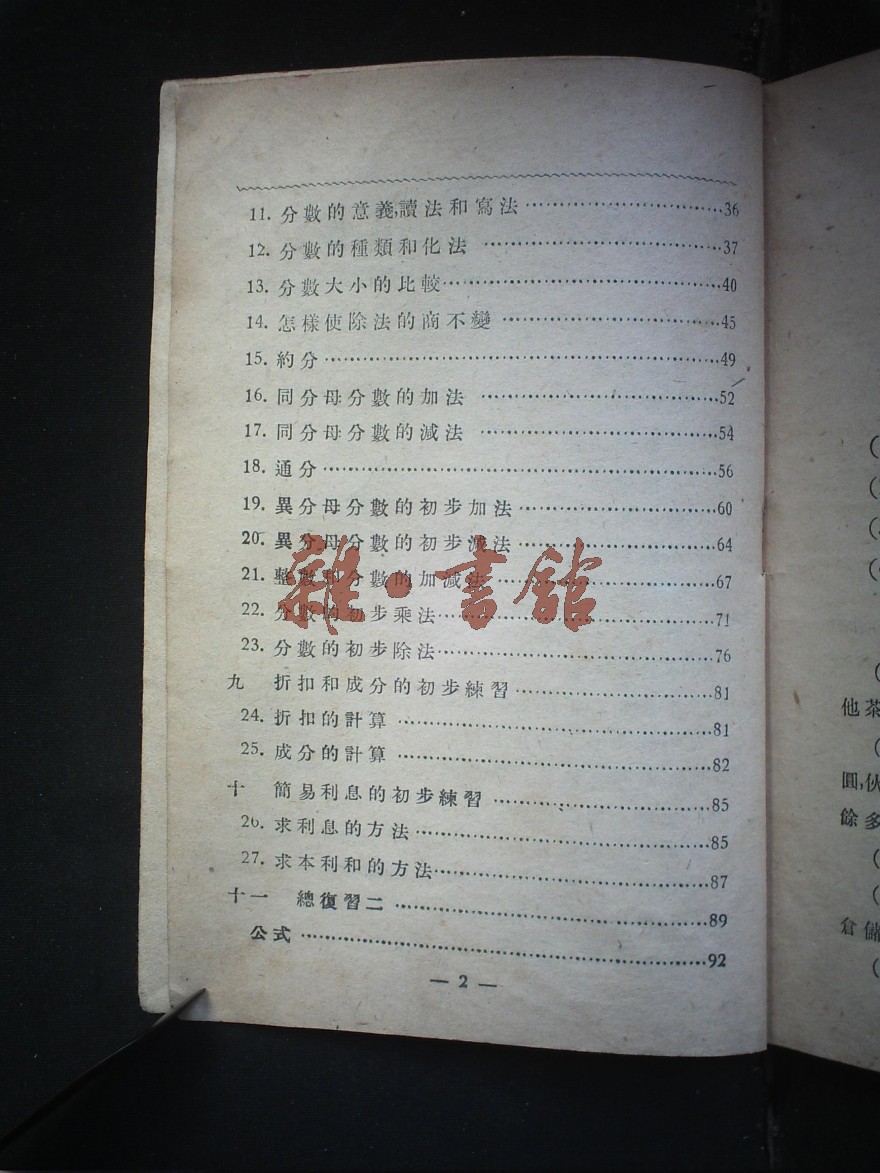 11. 分數的意義,讀法和寫法……………………36
12. 分數的種類和化法……………………37
13. 分數大小的比較……………………40
14. 怎樣使除法的商不變……………………45
15. 約分……………………49
16. 同分母分數的加法……………………52
17. 同分母分數的減法……………………54
18. 通分……………………56
19. 異分母分數的初步加法……………………60
20. 異分母分數的初步減法……………………64
21. 整數和分數的加減法……………………67
22. 分數的初步乘法……………………71
23. 分數的初步除法……………………76
九 折扣和成分的初步練習……………………81
24. 折扣的計算……………………81
25. 成分的計算……………………82
十 簡易利息的初步練習……………………85
26. 求利息的方法……………………85
27. 求本利和的方法……………………87
十一 總復習二……………………89
公式……………………92
— 2 —
雜·書館
他茶
圓,伙
餘多
倉儲